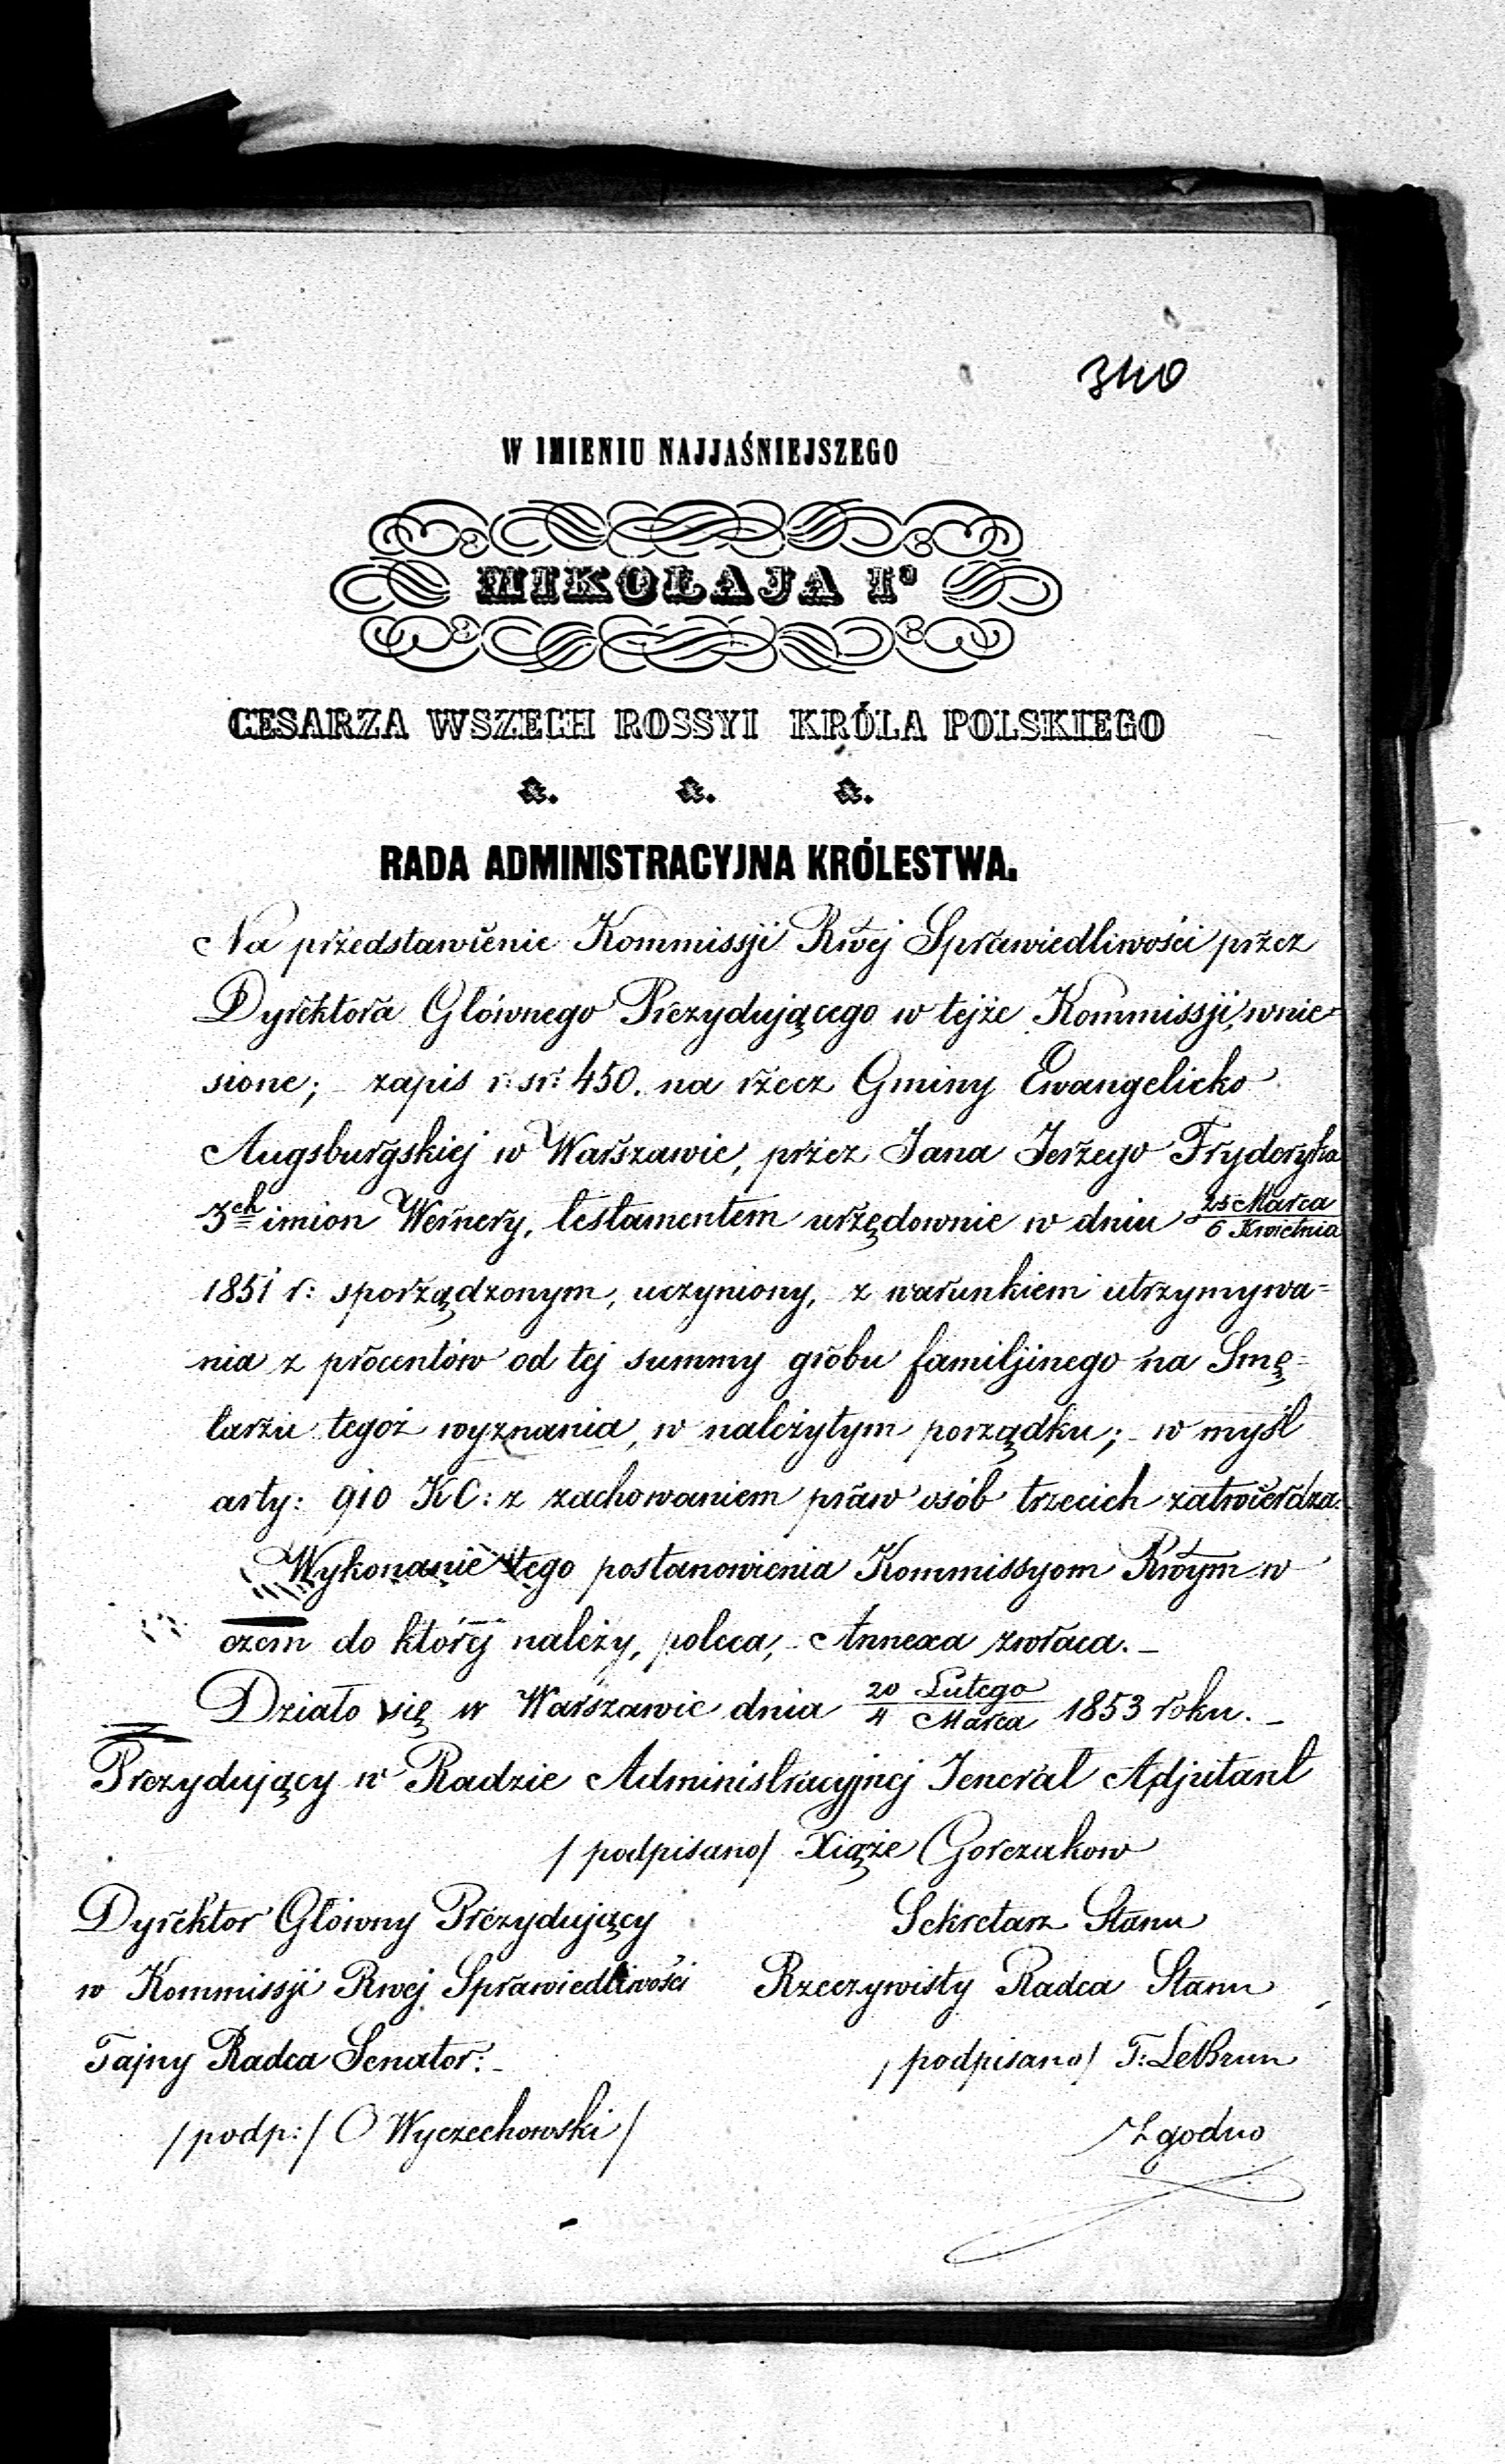 340
W IMIENIU NAJJAŚNIEJSZEGO
MIKOŁAJA I°
CESARZA WSZECH ROSSYI KRÓLA POLSKIEGO
&. &. &.
RADA ADMINISTRACYJNA KRÓLESTWA.
Na przedstawienie Kommissji Rwej Sprawiedliwości przez
Dyrektora Głównego Prezydującego w tejże Kommissji, wnie=
sione; zapis r: sr: 450. na rzecz Gminy Ewangelicko
Augsburgskiej w Warszawie, przez Jana Jerzego Fryderyka
3ch imion Wernery, testamentem urzędownie w dniu 25 Marca / 6 Kwietnia
1851 r: sporządzonym, uczyniony, z warunkiem utrzymywa=
nia z procentów od tej summy grobu familijnego na Smę=
tarzu tegoż wyznania, w należytym porządku; w myśl
arty: 910 KC: z zachowaniem praw osób trzecich zatwierdza.
Wykonanie tego postanowienia Kommissyom Rwym w
czem do której należy, poleca, Annexa zwraca. _
Działo się w Warszawie dnia 20 Lutego / 4 Marca 1853 roku. _
Prezydujący w Radzie Administracyjnej Jenerał Adjutant
/podpisano/ Xiąże Gorczakow
Dyrektor Główny Prezydujący Sekretarz Stanu
w Kommissji Rwej Sprawiedliwości Rzeczywisty Radca Stanu
Tajny Radca Senator: /podpisano/ T: LeBrun
/podp:/ O Wyczechowski/ Zgodno